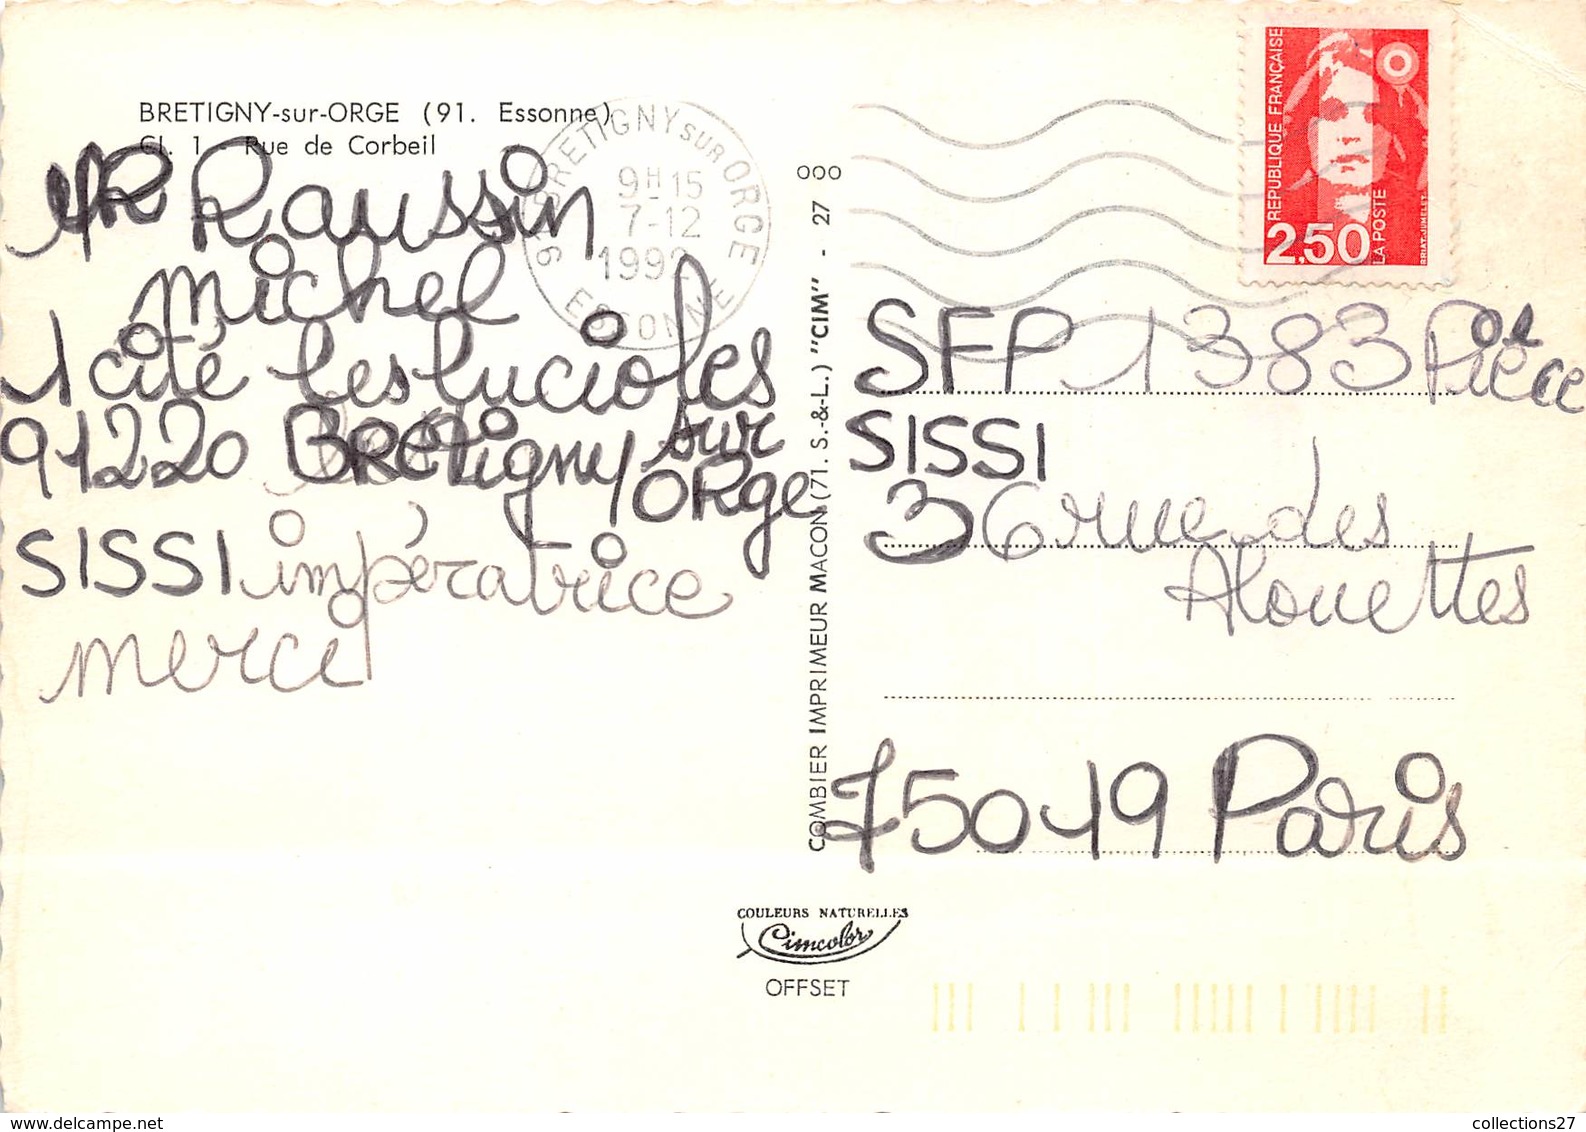 BRETIGNY-sur-ORGE (91. Essonne)
Cl. 1 Rue de Corbeil
MR Raussin
Michel
1 cité les lucioles
91220 BRétigny sur
ORge
SISSI impératrice
merci
91 BRETIGNY SUR ORGE
9H15
7-12
1992
ESSONNE
COMBIER IMPRIMEUR MACON (71. S.-&-L.) "CIM" - 27
000
REPUBLIQUE FRANÇAISE
2,50
LA POSTE
BRIAT.JUMELET
SFP 1383 Pièce
SISSI
36 rue des
Alouettes
75019 Paris
COULEURS NATURELLES
Cimcolor
OFFSET
collections27